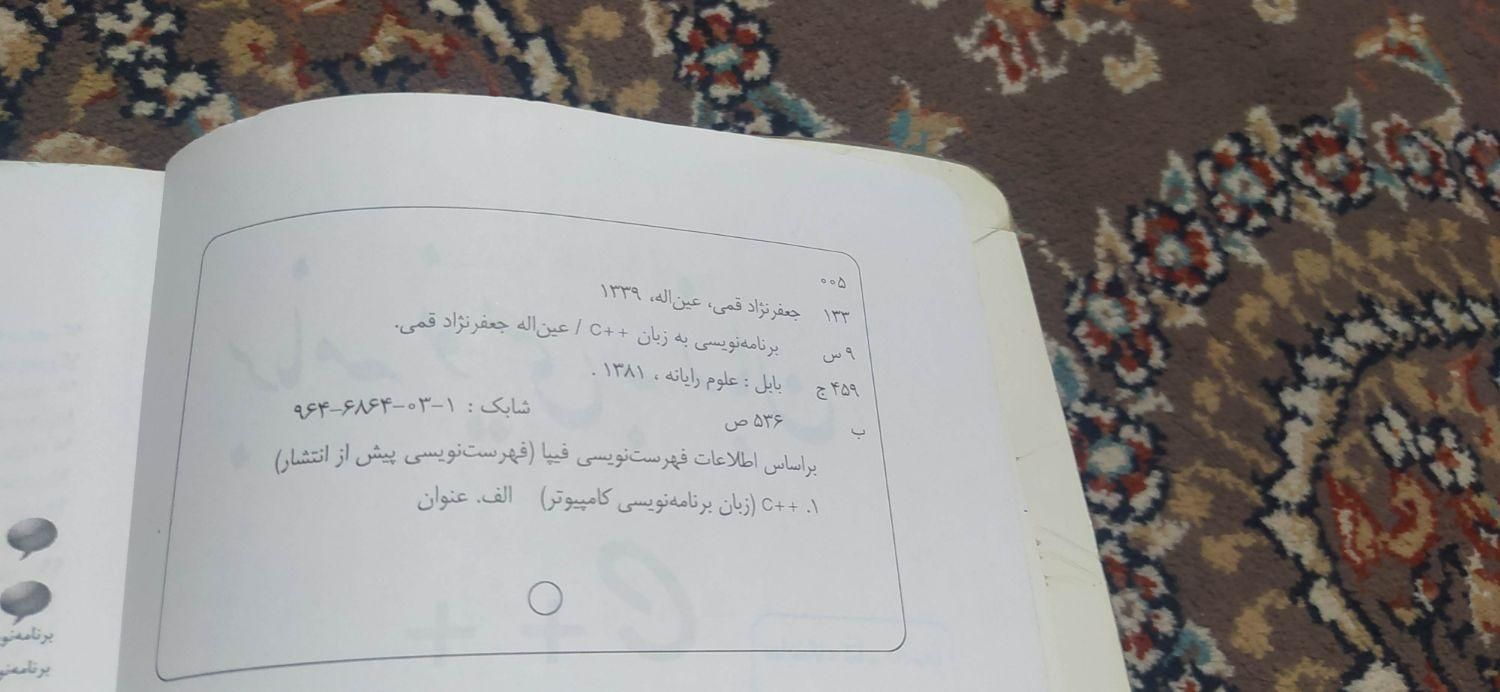 ۰۰۵
۱۳۳ جعفرنژاد قمی، عین‌اله، ۱۳۳۹
۹ س برنامه‌نویسی به زبان C++ / عین‌اله جعفرنژاد قمی.
۴۵۹ ج بابل : علوم رایانه ، ۱۳۸۱ .
ب ۵۳۶ ص شابک : ۱-۰۳-۶۸۶۴-۹۶۴
براساس اطلاعات فهرست‌نویسی فیپا (فهرست‌نویسی پیش از انتشار)
۱. C++ (زبان برنامه‌نویسی کامپیوتر) الف. عنوان